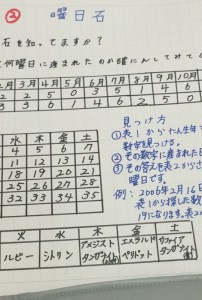 ② 曜日石
石を知ってますか？
何曜日に産まれたのか
2月 3月 4月 5月 6月 7月 8月 9月 10月
2 2 5 0 3 5 1
3 3 6 1 4 6 2 5 0
見つけ方
① 表1から
数字を見つける。
② その数字に産まれた日
③ その答えを表2からさ
曜日です。
例：2006年2月16日
表1から探した数
19になります。表2
水 木 金 土
4 5 6 7
11 12 13 14
18 19 20 21
25 26 27 28
32 33 34 35
火 水 木 金 土
ルビー シトリン アメジスト タンザナイト エメラルド ペリドット サファイア タンザナイト